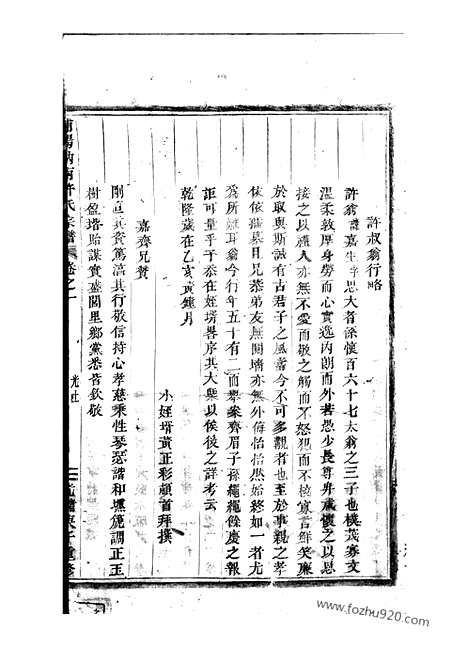 許叔翁行略
許翁諱嘉生字思大者係懷百六十七太翁之三子也樸茂寡文
溫柔敦厚身勞而心實逸內朗而外若愚少長尊卑咸懷之以恩
接之以禮人亦無不愛而敬之觸而不怒犯而不校寡言鮮笑廉
於取與斯誠有古君子之風當今不可多覯者也至於事親之孝
依依孺慕且兄恭弟友無鬩墻亦無外侮怡怡然始終如一者尤
為所難耳翁今行年五十有二而舉案齊眉子孫繩繩餘慶之報
詎可量乎予忝在姪壻畧序其大槩以俟後之詳考云
乾隆歲在乙亥黃鐘月
小姪壻黃正彩頓首拜撰
嘉齊兄贊
剛直其資篤滿其行敬信持心孝慈秉性琴瑟諧和壎篪調正玉
樹盈堦貽謀實盛閭里鄉黨悉皆欽敬
許氏宗譜 卷之一
光社
重修
www.fozhu920.com